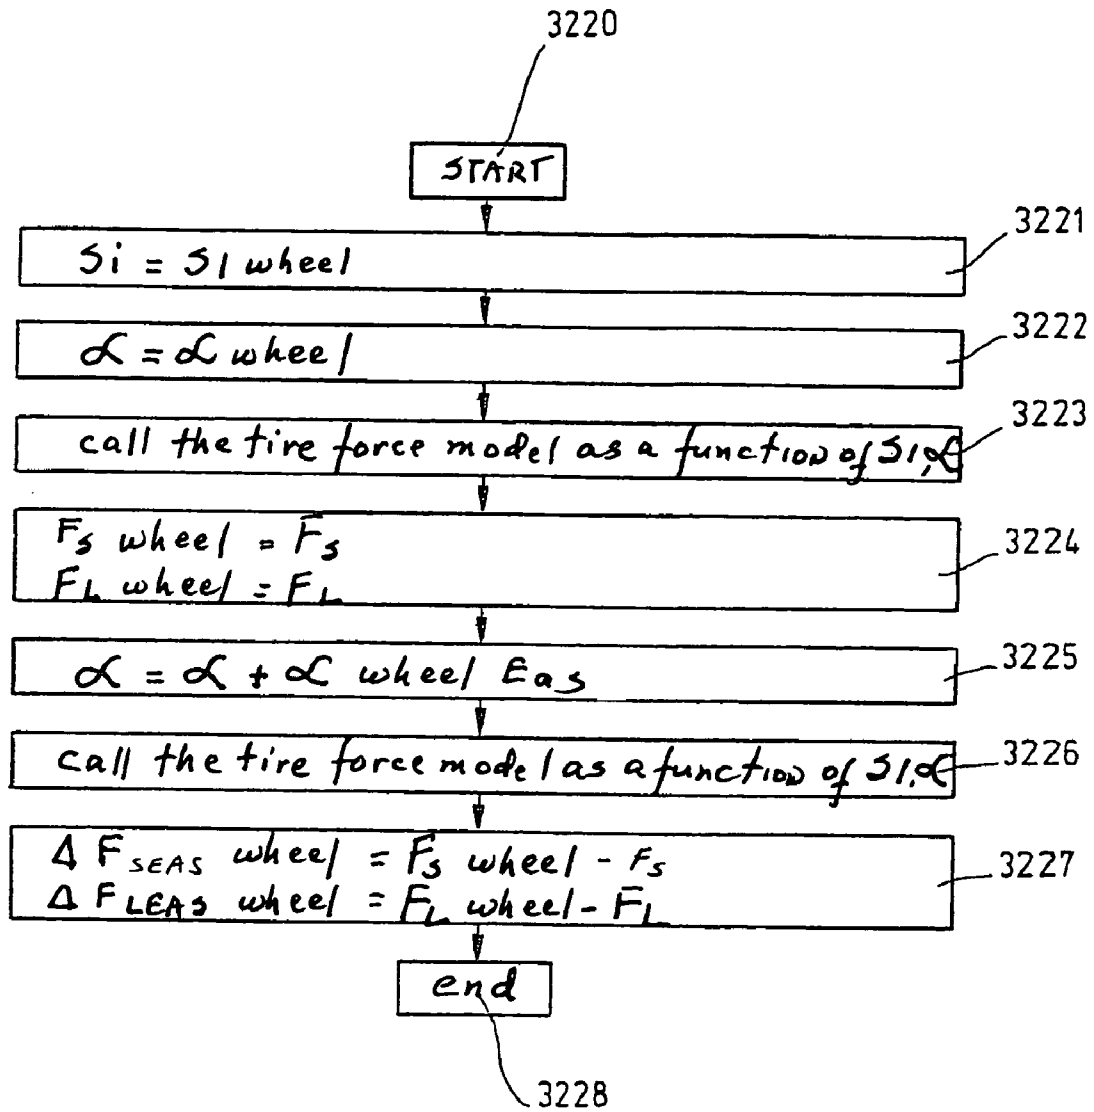 3220
START
3221
Si = Sl wheel
3222
α = α wheel
3223
call the tire force model as a function of Sl,α
3224
Fs wheel = Fs
FL wheel = FL
3225
α = α + α wheel Eas
3226
call the tire force model as a function of Sl,α
3227
Δ FSEAS wheel = Fs wheel - Fs
Δ FLEAS wheel = FL wheel - FL
end
3228